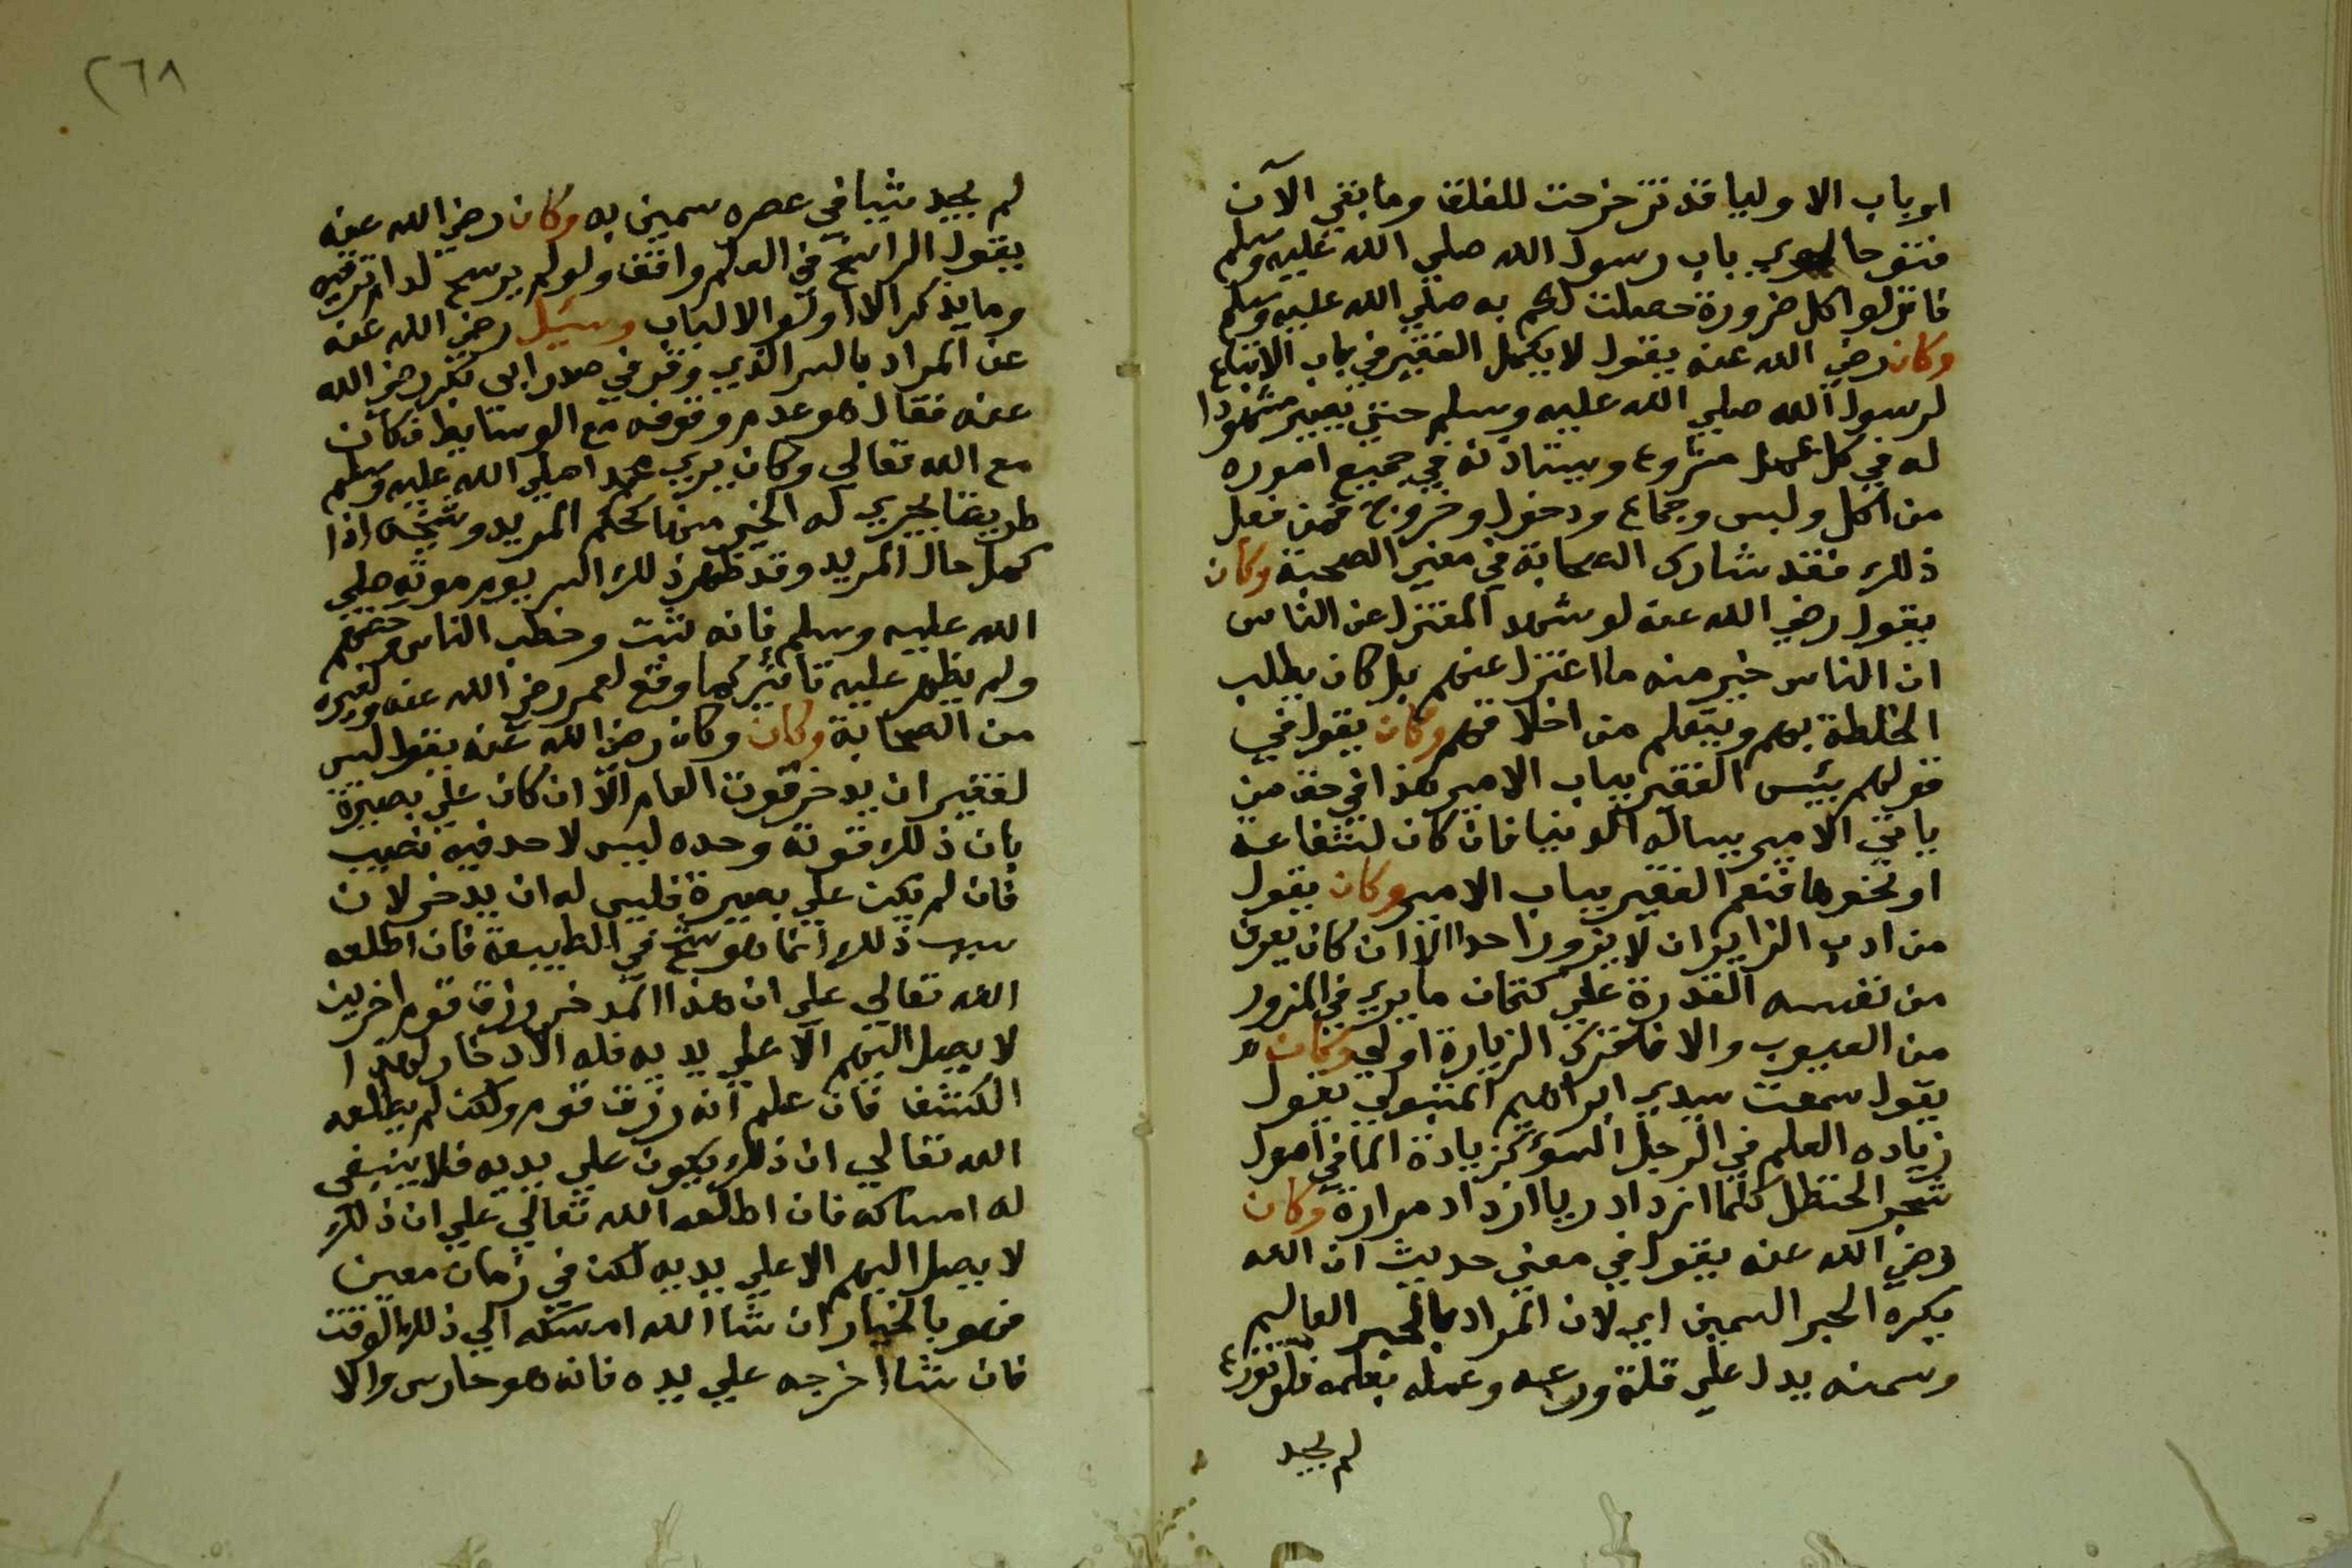 ابوباب الاوليا قد تزحزحت للغلق وما بقي الآن
مفتوحا سوي باب رسول الله صلي الله عليه وسلم
فانزلوا كل ضرورة حصلت لكم به صلي الله عليه وسلم
وكان رضي الله عنه يقول لا يكمل الفقير في باب الاتباع
لرسول الله صلي الله عليه وسلم حتي يصير مشهودا
له في كل عمل مشروع ويستاذنه في جميع اموره
من اكل ولبس وجماع ودخول وخروج فمن فعل
ذلك فقد شارك الصحابة في معني الصحبة وكان
يقول رضي الله عنه لو شهد المعتزل عن الناس
ان الناس خير منه ما اعتزل عنهم بل كان يطلب
الخلطة بهم ويتعلم من اخلاقهم وكان يقول في
قولهم بيئس الفقير بباب الامير هذا في حق من
ياتي الامير يساله الدنيا فان كان لشفاعة
او نحوها فنعم الفقير بباب الامير وكان يقول
من ادب الزاير ان لا يزور احدا الا ان كان يعرف
من نفسه القدرة علي كتمان ما يري في المزور
من العيوب والا فترك الزيارة اولي وكان
يقول سمعت سيدي ابراهيم المتبولي يقول
زياده العلم في الرجل السوء كزيادة الما في اصول
شجر الحنظل كلما ازداد ريا ازداد مرارة وكان
رضي الله عنه يقول في معني حديث ان الله
يكره الحبر السمين اي لان المراد بالحبر العالم
وسمنه يدل علي قلة ورعه وعمله بعلمه فلو تورع
لم يجد
٢٦٨
لم يجد شيبا في عصره سمين به وكان رضي الله عنه
يقول الراسخ في العلم واقف ولو لم يرسخ لدام ترقيه
وما يذكر الا اولو الالباب وسئيل رضي الله عنه
عن المراد بالسر الذي وقر في صدر ابي بكر رضي الله
عنه فقال هو عدم وقوفه مع الوسايط فكان
مع الله تعالي وكان يري محمدا صلي الله عليه وسلم
طريقا يجري له الخير منها كحكم المريد وشيخه اذا
كمل حال المريد وقد ظهر ذلك السر يوم موته صلي
الله عليه وسلم فانه ثبت وخطب الناس وحثهم
ولم يظهر عليه تاثير كما وقع لعمر رضي الله عنه ولغيره
من الصحابة وكان وكان رضي الله عنه يقول ليس
لفقير ان يدخر قوت العام الا ان كان علي بصيرة
بان ذلك قوته وحده ليس لاحد فيه نصيب
فان لم يكن علي بصيرة فليس له ان يدخر لان
سبب ذلك انما هو شح في الطبيعة فان اطلعه
الله تعالي علي ان هذا المدخر رزق قوم اخرين
لا يصل اليهم الا علي يديه فله الادخار لهذا
الكشف فان علم انه رزق قوم ولكن لم يطلعه
الله تعالي ان ذلك يكون علي يديه فلا ينبغي
له امساكه فان اطلعه الله تعالي علي ان ذلك
لا يصل اليهم الا علي يديه لكن في زمان معين
فهو بالخيار ان شاا لله امسكه الي ذلك الوقت
فان شا اخرجه علي يده فانه هو حارس والا